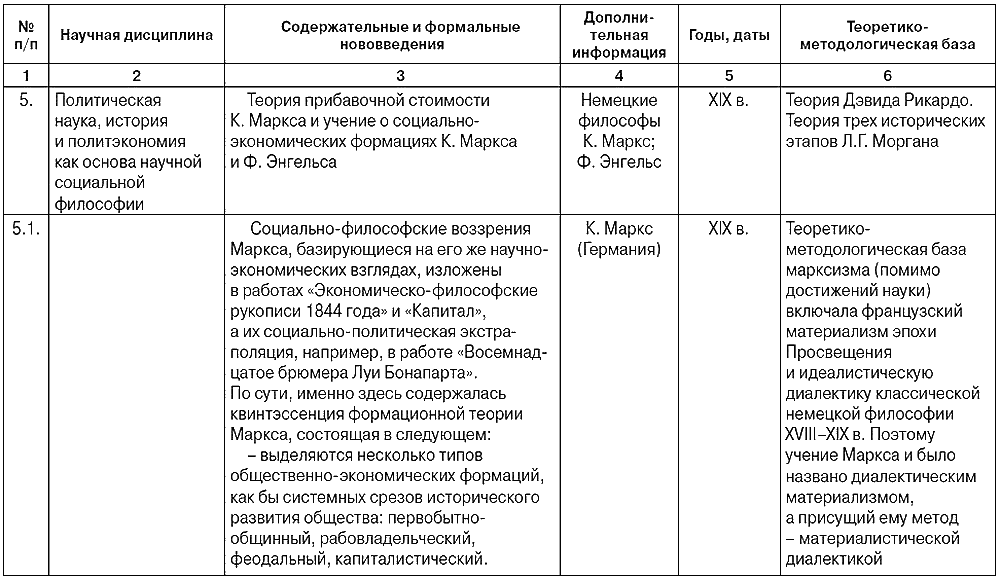 № п/п
Научная дисциплина
Содержательные и формальные
нововведения
Дополни-
тельная
информация
Годы, даты
Теоретико-
методологическая база
1
2
3
4
5
6
5.
Политическая
наука, история
и политэкономия
как основа научной
социальной
философии
Теория прибавочной стоимости
К. Маркса и учение о социально-
экономических формациях К. Маркса
и Ф. Энгельса
Немецкие
философы
К. Маркс;
Ф. Энгельс
XIX в.
Теория Дэвида Рикардо.
Теория трех исторических
этапов Л.Г. Моргана
5.1.
Социально-философские воззрения
Маркса, базирующиеся на его же научно-
экономических взглядах, изложены
в работах «Экономическо-философские
рукописи 1844 года» и «Капитал»,
а их социально-политическая экстра-
поляция, например, в работе «Восемнад-
цатое брюмера Луи Бонапарта».
По сути, именно здесь содержалась
квинтэссенция формационной теории
Маркса, состоящая в следующем:
– выделяются несколько типов
общественно-экономических формаций,
как бы системных срезов исторического
развития общества: первобытно-
общинный, рабовладельческий,
феодальный, капиталистический.
К. Маркс
(Германия)
XIX в.
Теоретико-
методологическая база
марксизма (помимо
достижений науки)
включала французский
материализм эпохи
Просвещения
и идеалистическую
диалектику классической
немецкой философии
XVIII–XIX в. Поэтому
учение Маркса и было
названо диалектическим
материализмом,
а присущий ему метод
– материалистической
диалектикой